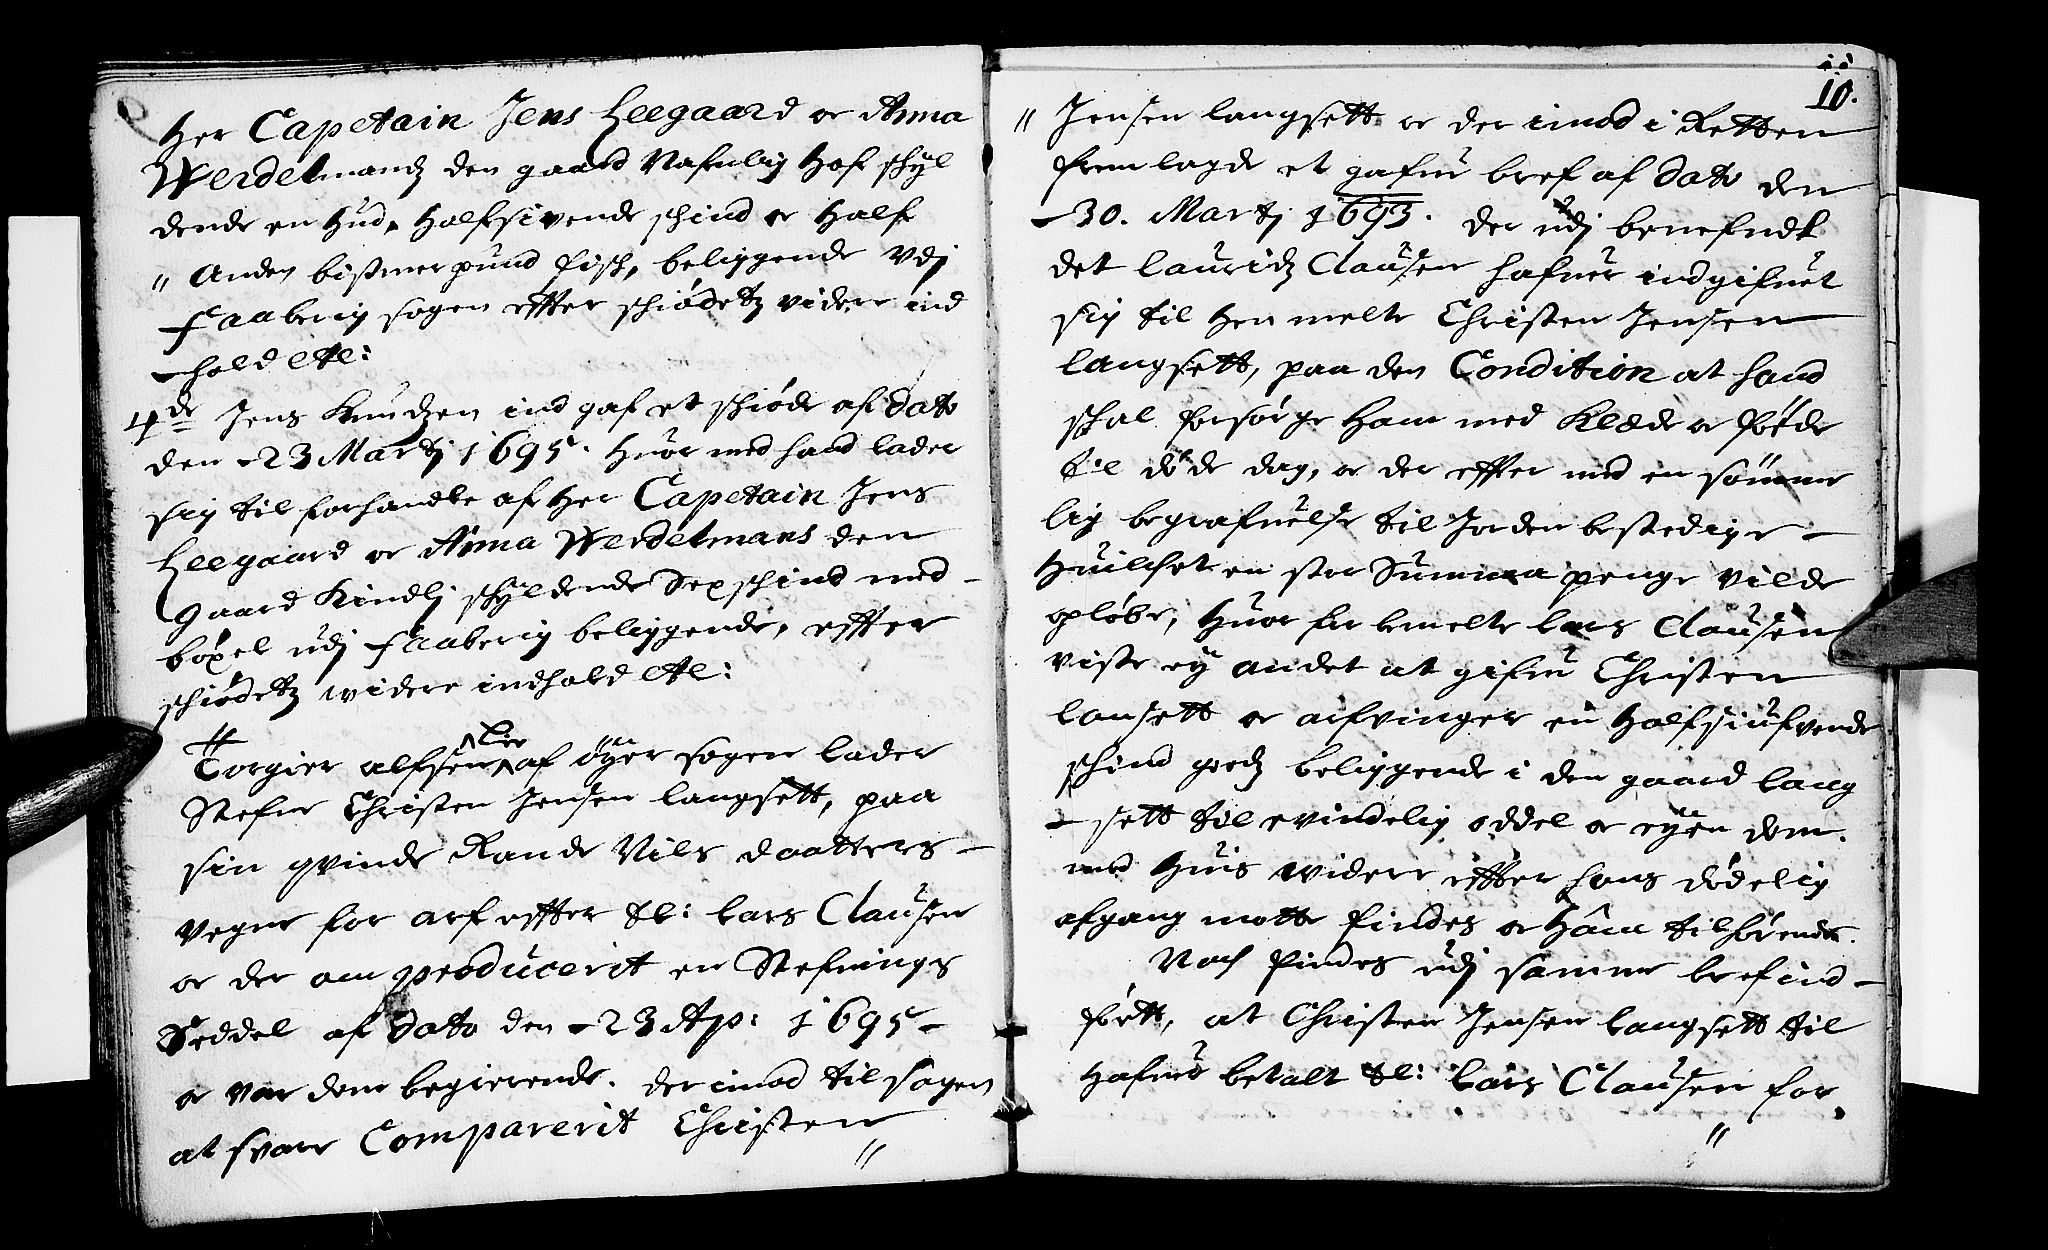 Her Capetain Jens Leegaard oc Anna
Werdelmandz den gaard Nafnlig Hof skyl
dende en Hud, Halfsivende skind oc Half
" Anden bissmerpund fisk, beliggende Vdj
Faaberig sogen effter skiødetz videre ind
hold etc:
4de Jens Knudzen ind gaf et skiøde af dato
den 23 Martj 1695. Huor med hand lader
sig til forhandle af Her Capetain Jens
Leegaard oc Anna Werdelmans den
gaard Kindlj skyldende Sex skind med
böxel udj Faaberig beliggende, effter
skiödetz widere indhold etc:
Torgier alfsen Lie af öyer sogen lader
Stefne Christen Jensen langsett, paa
sin qvinde Rande Nils daatters
vegne for arf effter Sl: Lars Clausen
oc der om producerit en Stefnings
Seddel af dato den 23 Ap: 1695
oc var dom begierende. der imod til sagen
at svare Comparerit Christen
"
10.
" Jensen langsett oc der imod i Retten
frem lagde et gafue bref af dato den
30. Martj 1693. der udj benefndt
det lauridz Clausen hafuer indgifuet
sig til Her melte Christen Jensen
langsett, paa den Condition at hand
skal forsörge Ham med Klæde oc föde
til döde dag, oc der effter med en sömme
lig begrafuelse til Jorden bestedige
Huilchet en stor Summa penge vilde
oplöbe, Huor for bemelte Lars Clausen
viste ey andet at gifue Christen
lansett oc arfvinger en Halfsiufvende
skind goedz beliggende i den gaard lang
sett til evindelig oddel oc eyendom.
med Huis widere effter hans dödelig
afgang motte findes oc Ham tilhörende.
Noch findes udj samme bref ind
fört, at Christen Jensen langsett til
Hafuer betalt Sl: Lars Clausen for
"